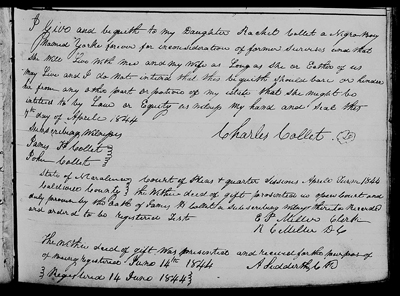 I Give and bequeth to my Daughter Rachel Collet a Nigro Boy
Named York forever for inconsideration of former Survices and that
she will Live with me and my wife as Long as She or Eather of us
may Live and I do Not intend that this bequeth Should bare or hinder
her from any other part or portion of my estate that She might be
intitled to by Law or Equity as witness my hand and Seal this
7th day of Aprile 1844
Subscribing Witnesses
Charles Collet
James H Collet
John Collet
State of N Carolina Court of Pleas & quarter Sessions April Term 1844
Caldwell County The Within deed of gift was proven in open Court and
duly proven by the oath of James H Collet a Subscribing witness thereto Recorded
and ordered to be registered Test
E P Miller Clerk
R C Miller D C
The within deed of gift was presented and received for the purpose of
of being registered June 14th 1844
Registered 14 June 1844